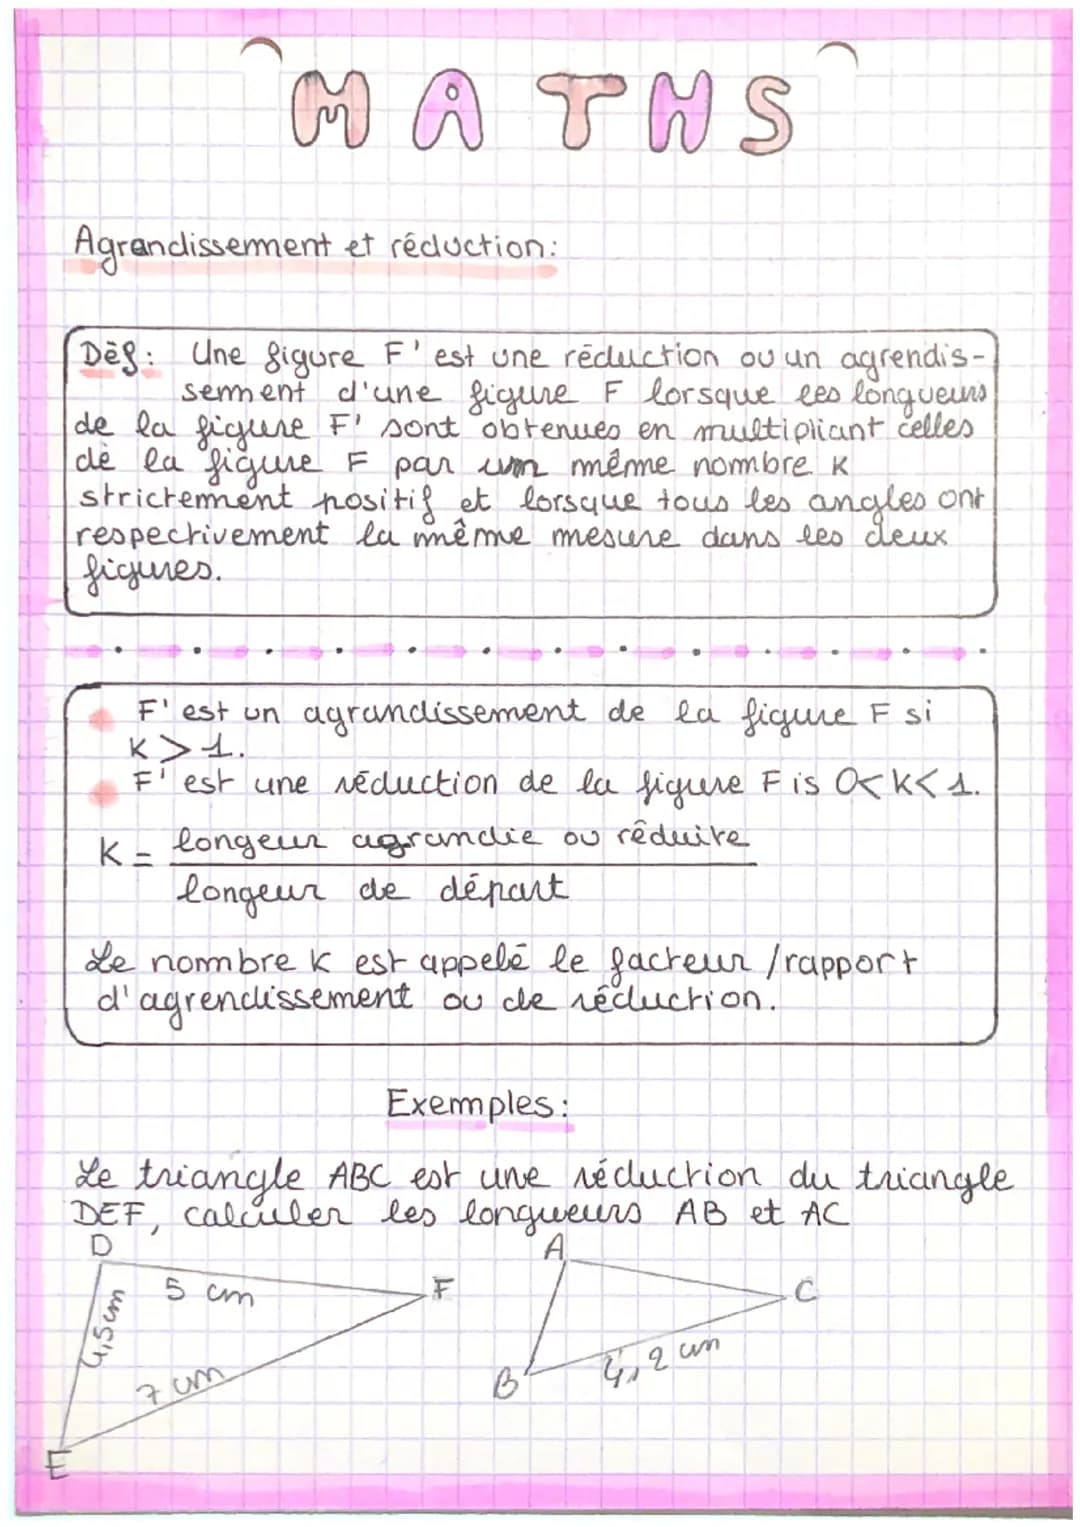 MATHS
Agrandissement et réduction:
Dèf: Une figure F' est une réduction ou un agrendis-
sement d'une figure F lorsque les longueurs
de la figure F' sont obtenues en multipliant celles
de la figure F par un même nombre K
strictement positif et lorsque tous les angles ont
respectivement la même mesure dans les deux
figures.
F' est un agrandissement de la figure F si
K > 1.
F' est une réduction de la figure F is 0<K<1.
K = longeur agrandie ou réduite
longeur de départ
Le nombre K est appelé le facteur /rapport
d'agrendissement ou de réduction.
Exemples:
Le triangle ABC est une réduction du triangle
DEF, calculer les longueurs AB et AC
D
A
5 cm
F
C
4,5cm
7 cm
B
4,2 cm
E